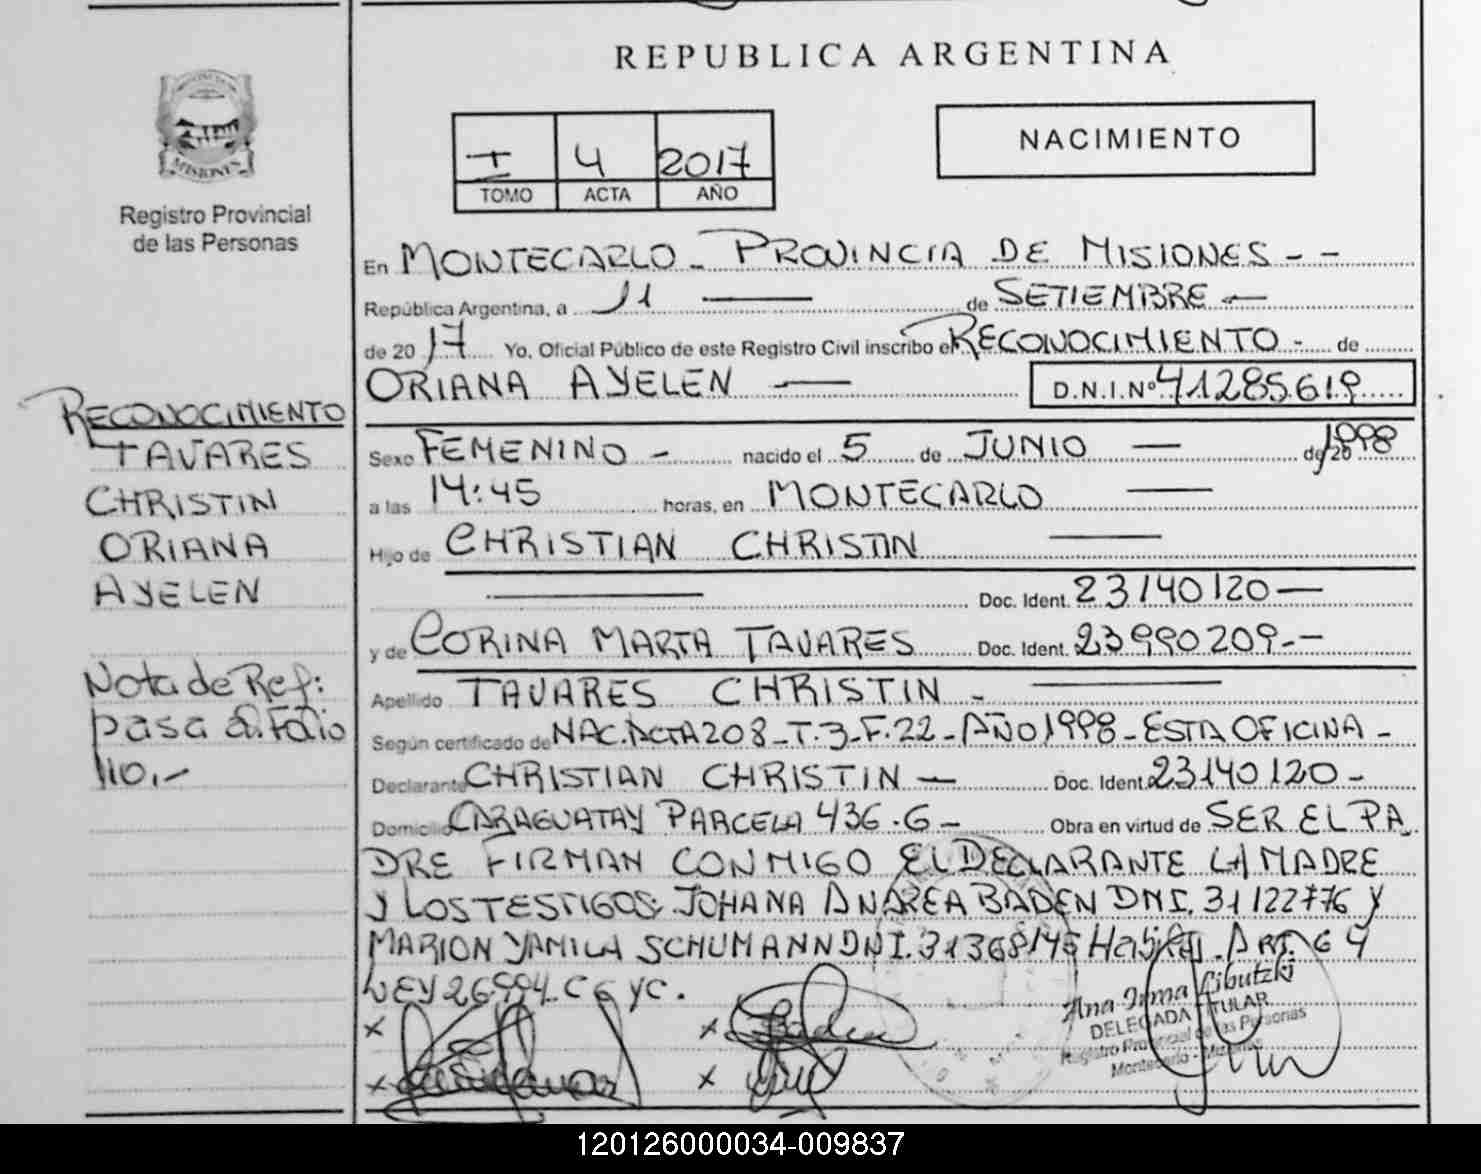 REPUBLICA ARGENTINA
I 4 2017
TOMO ACTA AÑO
NACIMIENTO
MISIONES
Registro Provincial
de las Personas
En MONTECARLO - PROVINCIA DE MISIONES - -
República Argentina, a 11 — de SETIEMBRE —
de 2017 Yo, Oficial Público de este Registro Civil inscribo el RECONOCIMIENTO - de
ORIANA AYELEN — D.N.I.Nº 41285619
Sexo FEMENINO - nacido el 5 de JUNIO — de 1998
a las 14:45 horas, en MONTECARLO —
Hijo de CHRISTIAN CHRISTIN —
— Doc. Ident. 23140120 —
y de CORINA MARTA TAVARES Doc. Ident. 23990209.-
Apellido TAVARES CHRISTIN - —
Según certificado de NAC. ACTA 208 - T.3 - F.22 - AÑO 1998 - ESTA OFICINA -
Declarante CHRISTIAN CHRISTIN — Doc. Ident. 23140120 -
Domicilio CARAGUATAY PARCELA 436.G - Obra en virtud de SER EL PA
DRE FIRMAN CONMIGO EL DECLARANTE LA MADRE
Y LOS TESTIGOS: JOHANA ANDREA BADEN DNI. 31122776 Y
MARION YAMILA SCHUMANN DNI. 31368145 Hábiles. ART. 64
LEY 26994. C C y C.
RECONOCIMIENTO
TAVARES
CHRISTIN
ORIANA
AYELEN
Nota de Ref:
pasa a Folio
110.-
Ana Irma Libutzki
DELEGADA TITULAR
Registro Provincial de las Personas
Montecarlo - Misiones
120126000034-009837